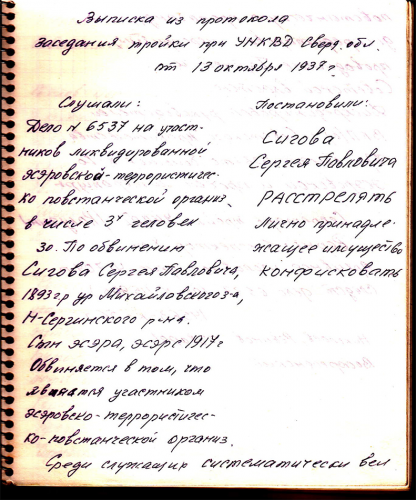 Выписка из протокола
заседания тройки при УНКВД Сверд. обл.
от 13 октября 1937 г.
Слушали:
Дело № 6537 на участ-
ников ликвидированной
эсэровской-террористичес-
ко повстанческой организ.
в числе 34 человек
30. По обвинению
Сигова Сергея Павловича,
1893 г р ур Михайловского з-а,
Н-Сергинского р-на.
Сын эсэра, эсэр с 1917 г
Обвиняется в том, что
является участником
эсэровско-террористичес-
ко-повстанческой организ.
Среди служащих систематически вел
Постановили:
Сигова
Сергея Павловича
РАССТРЕЛЯТЬ
Лично принадле-
жащее имущество
конфисковать